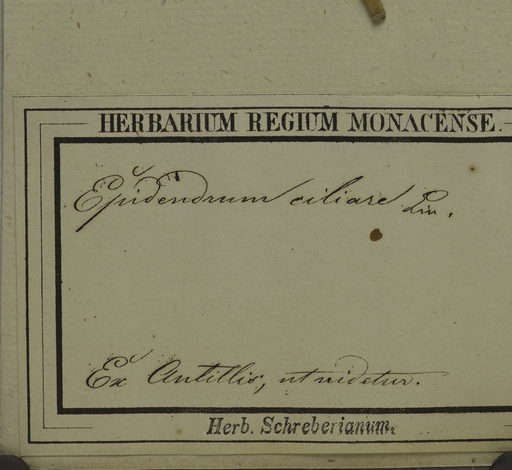 HERBARIUM REGIUM MONACENSE.
Epidendrum ciliare Lin.
Ex Antillis, ut videtur.
Herb. Schreberianum.